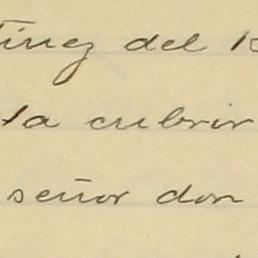 tinez del
ta cubrir
señor don